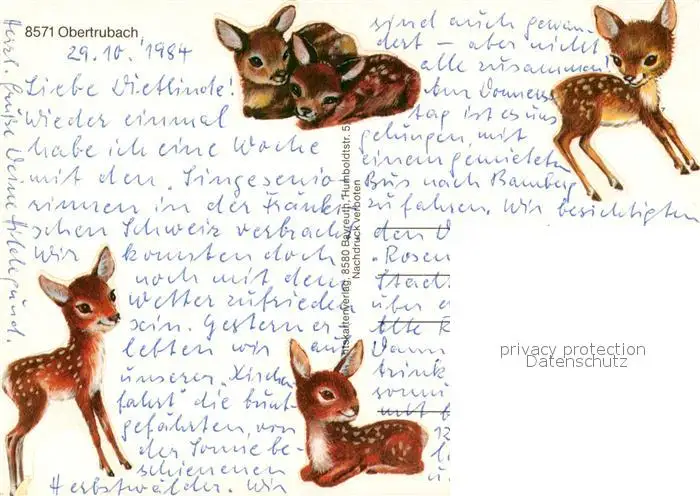 8571 Obertrubach
29.10. 1984
Liebe Dietlinde!
Wieder einmal
habe ich eine Woche
mit den "Singesenio-
rinnen in der Fränki-
schen Schweiz verbracht
Wir konnten doch
noch mit dem
Wetter zufrieden
sein. Gestern er-
lebten wir auf
unserer "Kirch-
fahrt" die bunt-
gefährten, von
der Sonne be-
schienenen
Herbstwälder. Wir
sind auch gewan-
dert – aber nicht
alle zusammen!
Am Donners-
tag ist es uns
gelungen, mit
einem gemieteten
Bus nach Bamberg
zu fahren. Wir besichtigten
den D
"Rosen
Stadt
über
Alte R
Dann
trink
sonni
mit
12
Herzl. Grüße Deine Hildegund.
Ansichtskartenverlag, 8580 Bayreuth, Humboldtstr. 5
Nachdruck verboten
privacy protection
Datenschutz